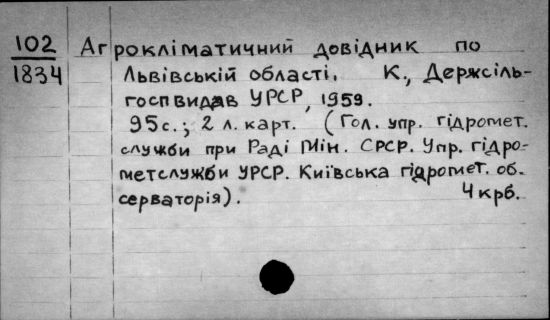 102 Агрокліматичний довідник по
1834 Львівській області. К., Держсіль-
госпвидав УРСР, 1959.
95с.; 2 л. карт. (Гол. упр. гідромет.
служби при Раді Мін. СРСР. Упр. гідро-
метслужби УРСР. Київська гідромет. об.
серваторія). 4 крб.